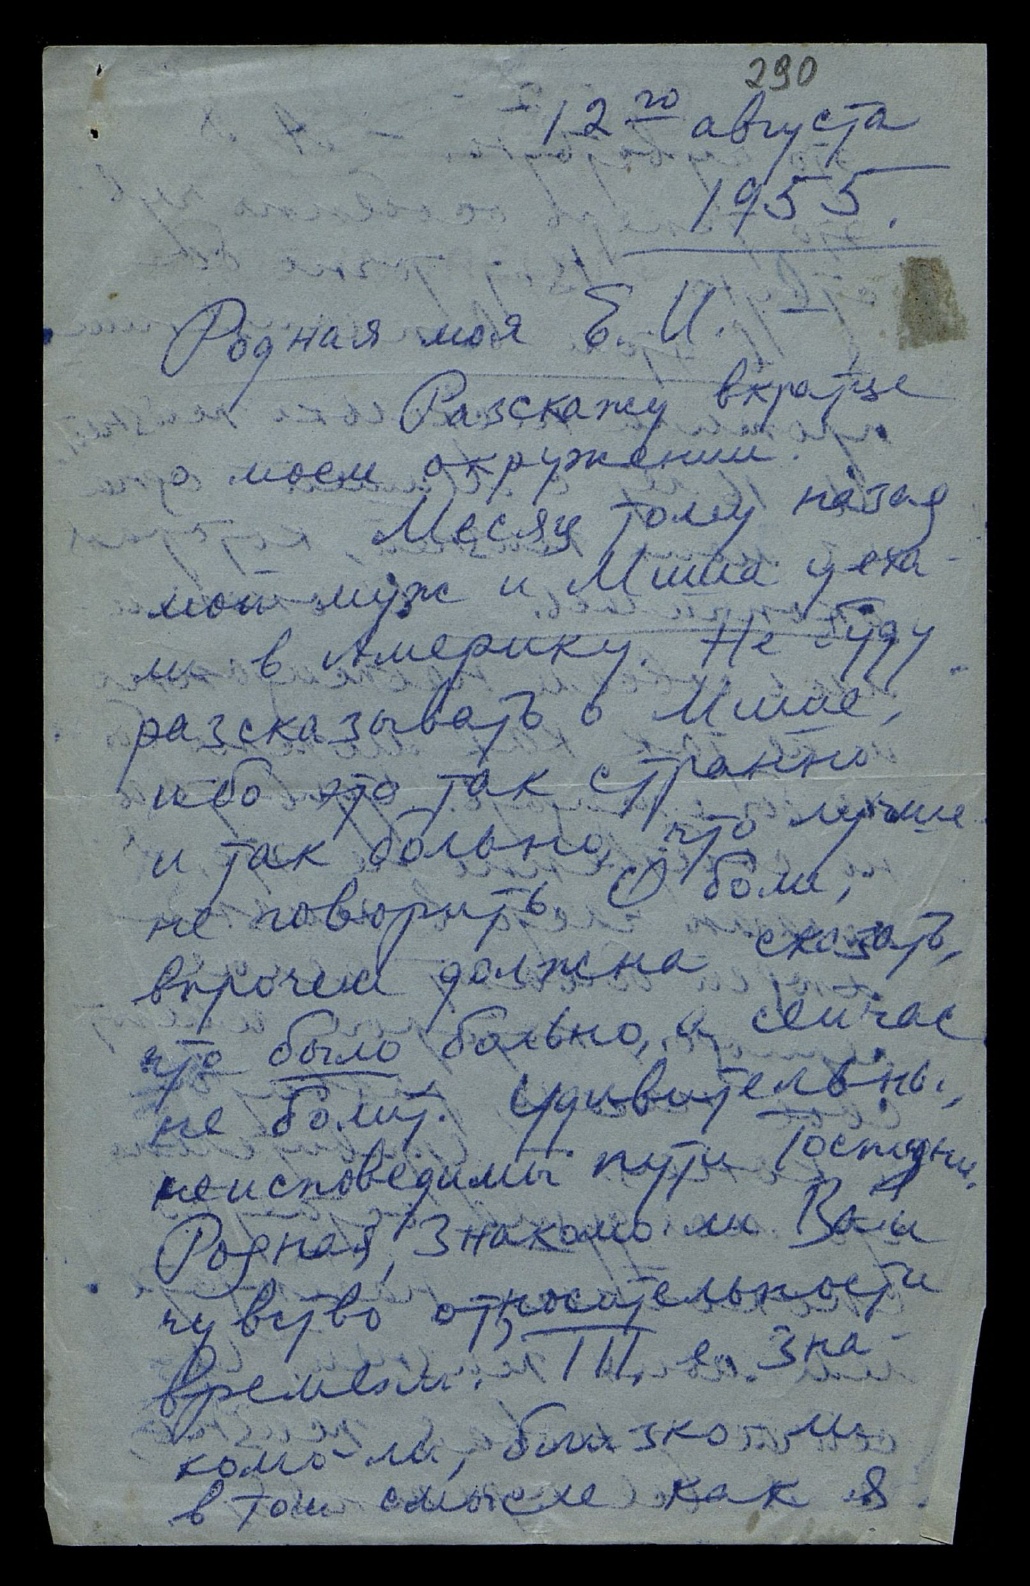 290
12го августа
1955.
Родная моя Е. И. –
Разскажу вкратце
о моем окружении.
Месяц тому назад
мой муж и Миша уеха-
ли в Америку. Не буду
разсказывать о Мише,
ибо это так странно
и так больно, что лучше
не говорить. О боли,
впрочем должна сказать,
что было больно, а сейчас
не болит. Удивительны,
неисповедимы пути Господни.
Родная, знакомо ли Вам
чувство относительности
времени. Т. е. зна-
комо ли, близко ли
в том смысле как я